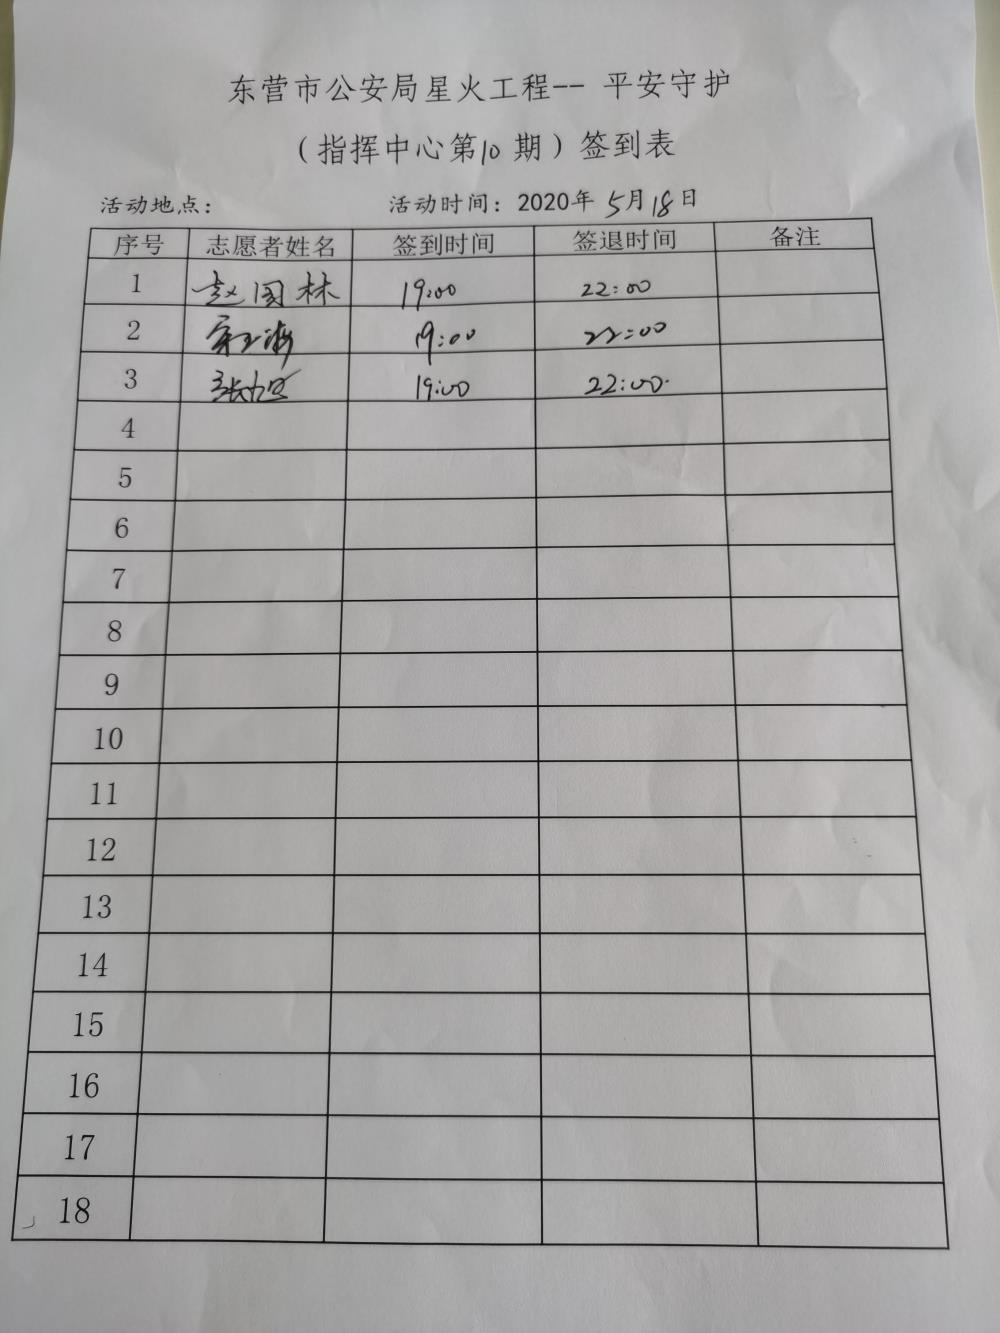 东营市公安局星火工程-- 平安守护
（指挥中心第10期）签到表
活动地点： 活动时间：2020年5月18日
序号 志愿者姓名 签到时间 签退时间 备注
1 赵国林 19:00 22:00
2 19:00 22:00
3 19:00 22:00
4
5
6
7
8
9
10
11
12
13
14
15
16
17
18